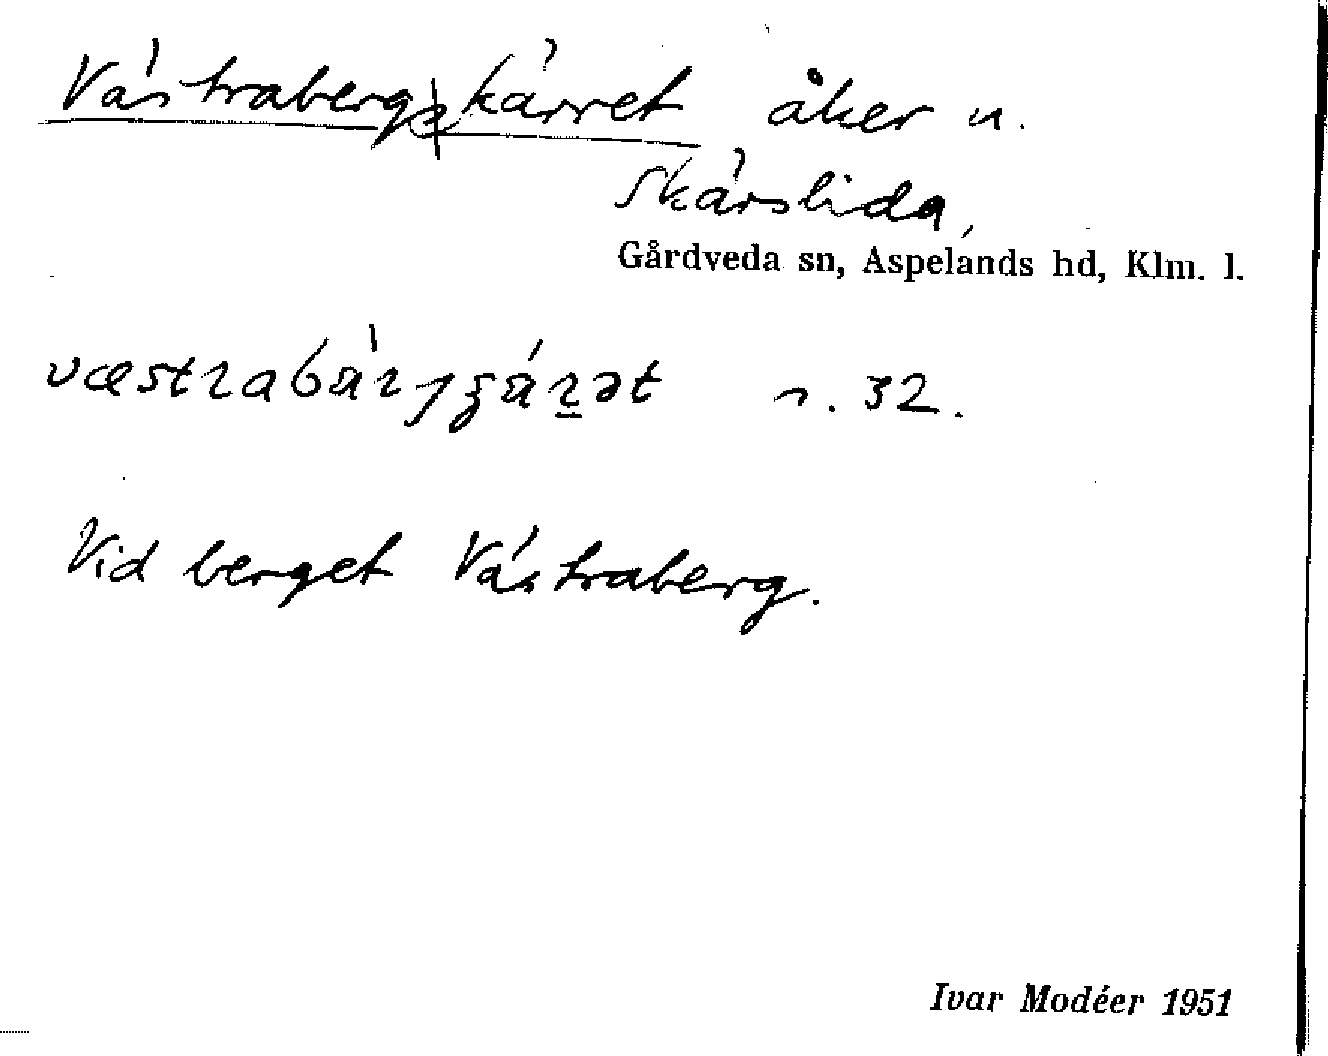 Västrabergkärret åker u.
Skärslida,
Gårdveda sn, Aspelands hd, Klm. l.
n. 32.
Vid berget Västraberg.
Ivar Modéer 1951